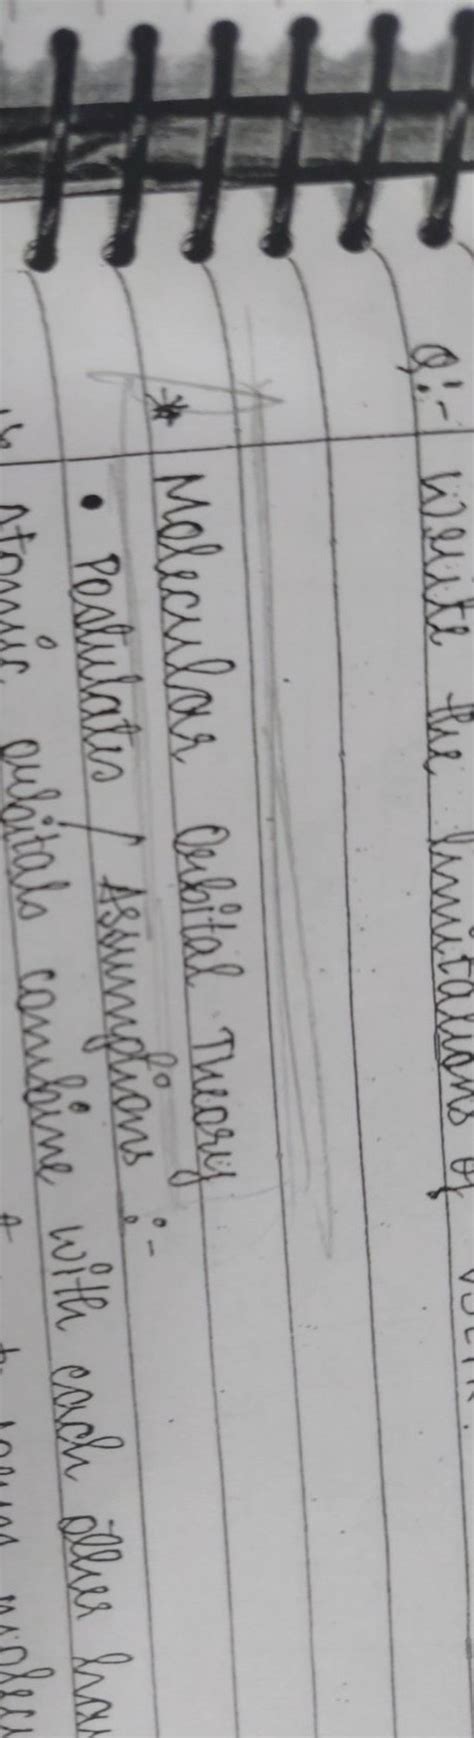 Q:- Write the limitations of VSEPR.
* Molecular Orbital Theory
• Postulates / Assumptions :-
Atomic orbitals combine with each other